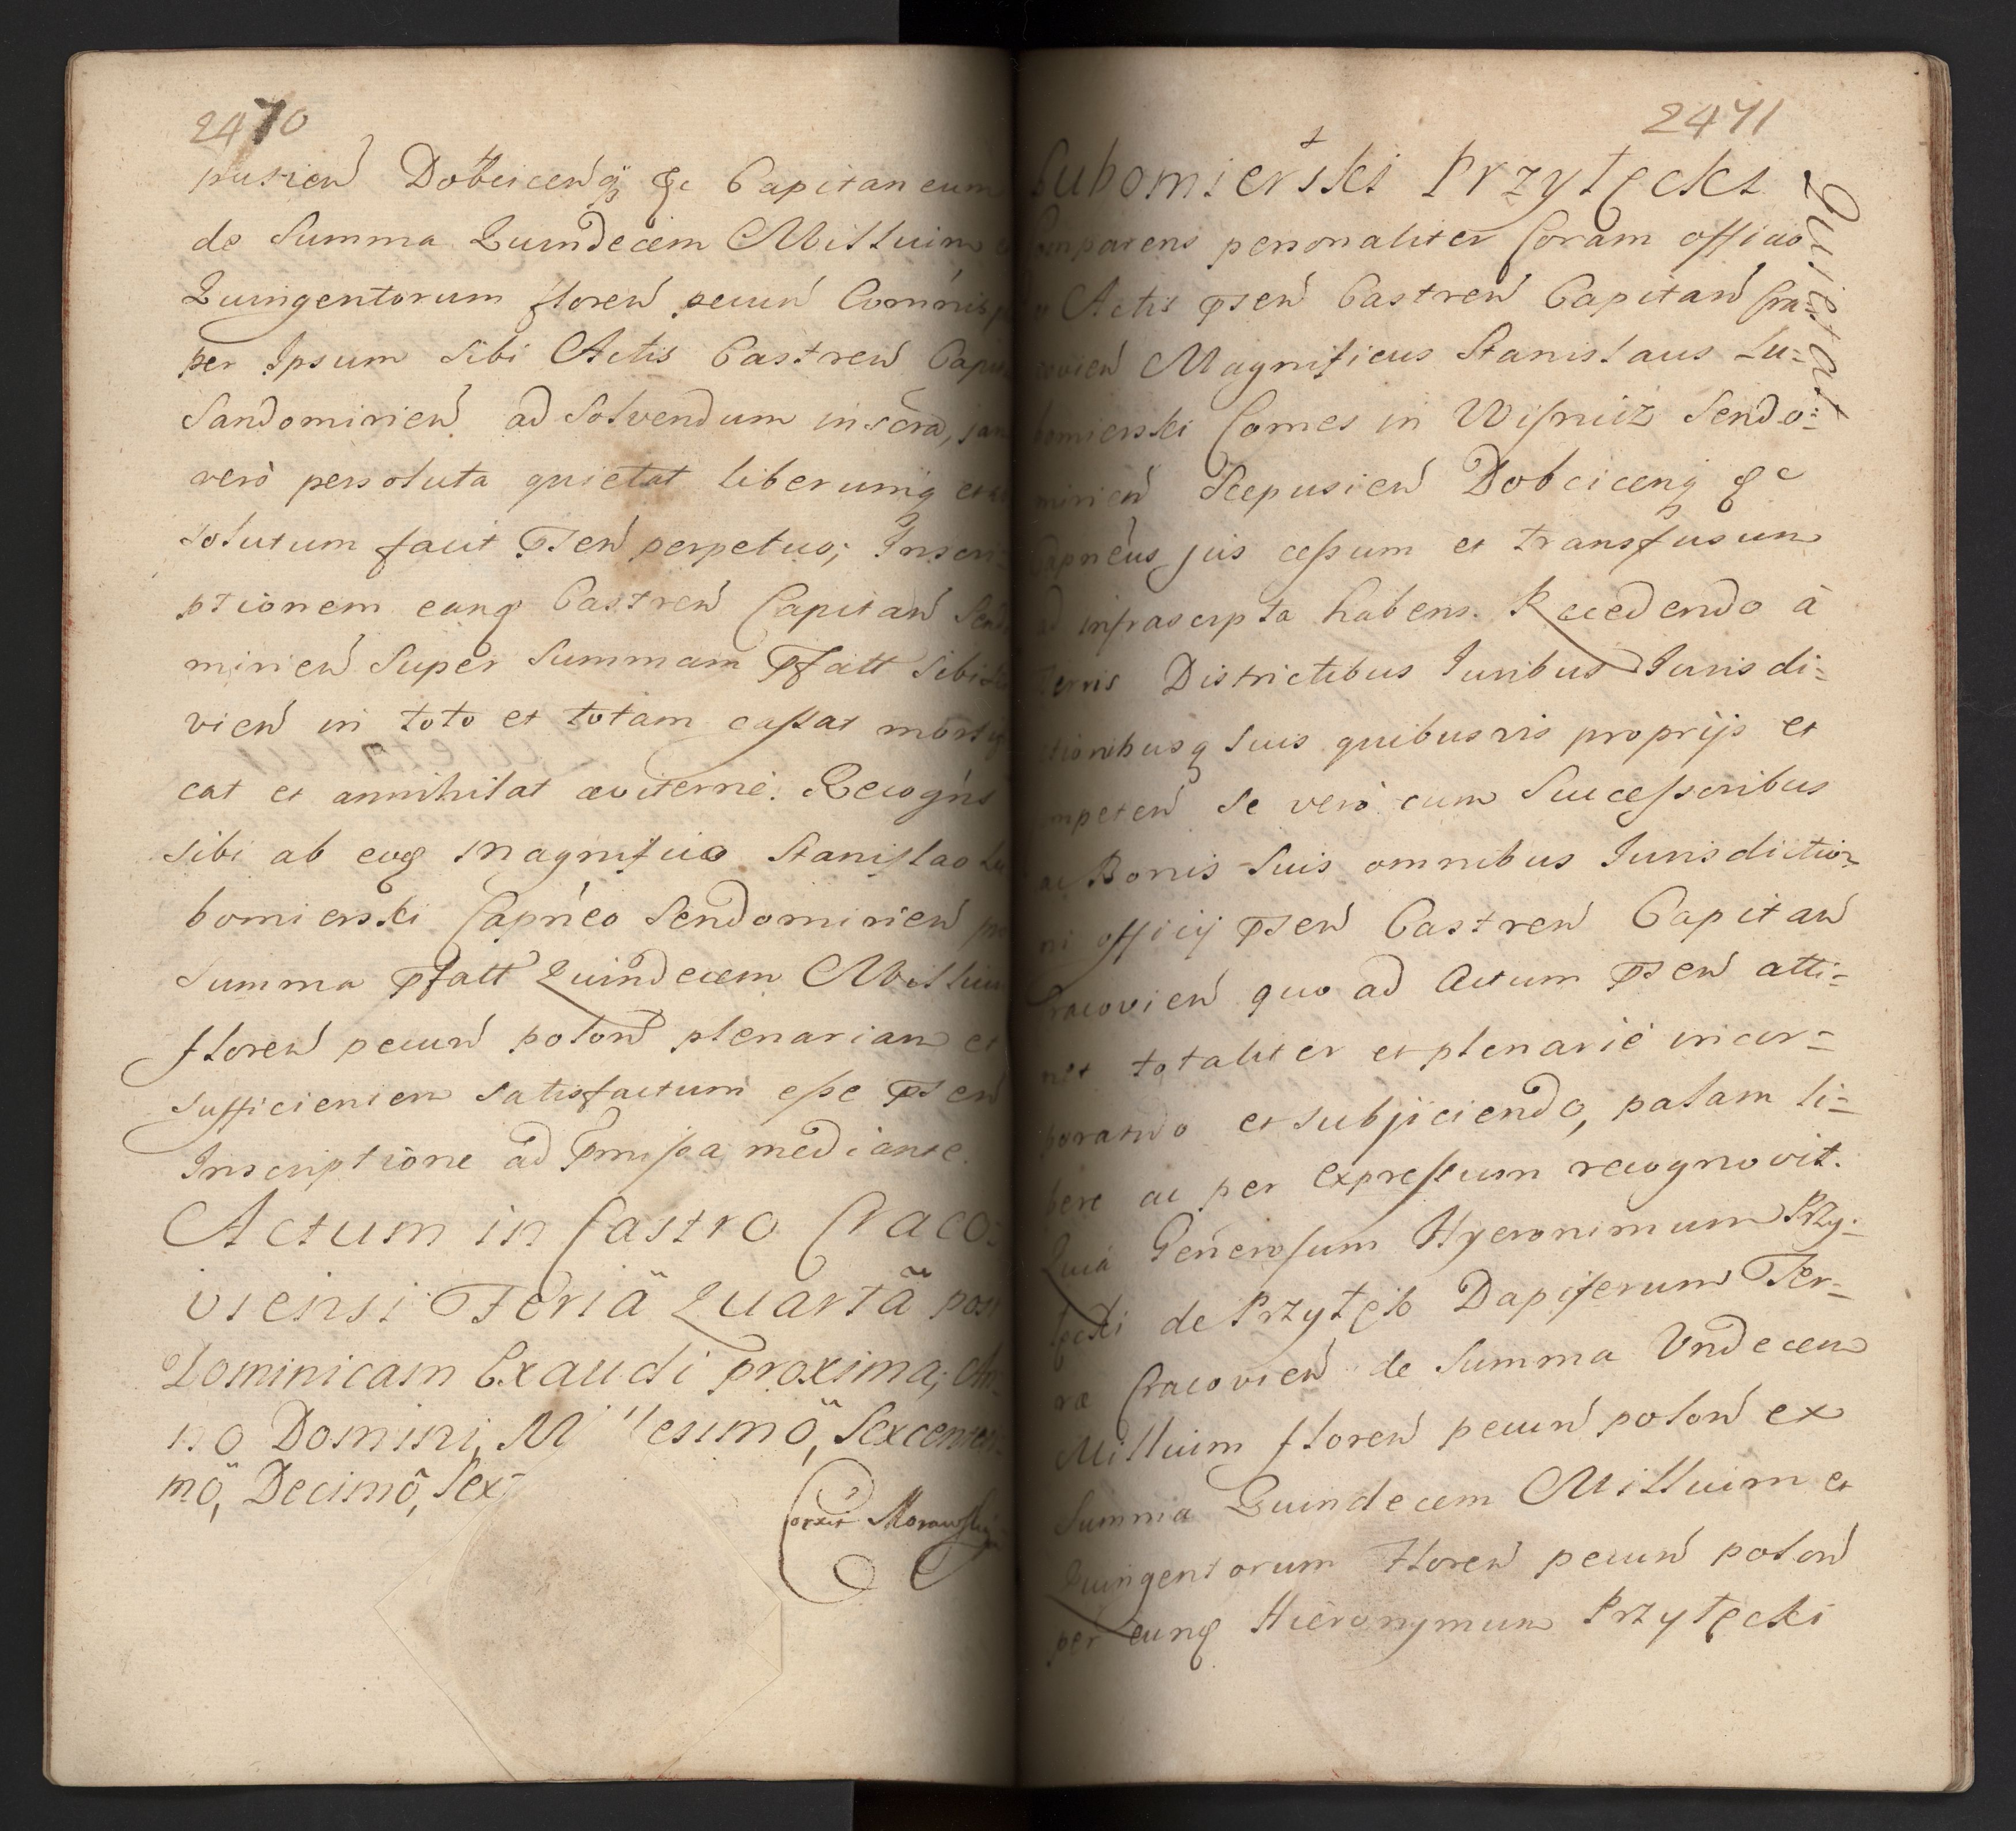 2470
pusień Dobcicenq̃ &c Capitaneum
de Summa Quindecem Millium
Quingentorum floreń pecuń Com̃nis
per Ipsum sibi Actis Castreń
Sandomirień ad solvendum inscra, jam
verò persoluta quietat liberumq
solutum facit Pseń perpetuo; Inscri=
ptionem eanq Castreń Capitań
mirień super summam Pfatt sibi
vień in toto et totam cassat morti
cat et annihilat æviternè. Recogńs
sibi ab eoq Magnifico Stanislao Lu
bomierski Capńeo Sendomirień
summa Pfatt Quindecem Millium
floreń pecuń poloń plenariam et
sufficientem satisfactum esse Pseń
Inscriptione ad Pmissa mediante.
Actum in Castro Craco=
viensi Feriâ Quartâ post
Dominicam Exaudi proxima; An=
no Domini, Millesimô, Sexcentesi
mô, Decimô, Sex
Corxit Morawski
2471
Lubomierski Przyłęcki
Quietat
Comparens personaliter Coram officio
Actis Pseń Castreń Capitań Cra=
covień Magnificus Stanislaus Lu=
bomierski Comes in Wisnicz Sendo=
mirień Scepusień Dobcicenq &c
Capńeus jus cessum et transfusum
ad infrascripta habens. Recedendo à
Terris Districtibus Iuribus Iurisdi=
ctionibusq suis quibusvis proprijs et
competeń se verò cum Successoribus
ac Bonis suis omnibus Iurisdiction
ni officij Pseń Castreń Capitań
Cracovień quo ad Actum Pseń atti=
net totaliter et plenariè incor=
porando et subjiciendo, palam li=
bere ac per expressum recognovit.
Quia Generosum Hyeronimum Przy=
łęcki de Przyłęk Dapiferum Ter=
ræ Cracovień de summa Undecem
Millium floreń pecuń poloń ex
Summa Quindecem Millium et
Quingentorum floreń pecuń poloń
per eunq Hieronymum Przyłęcki